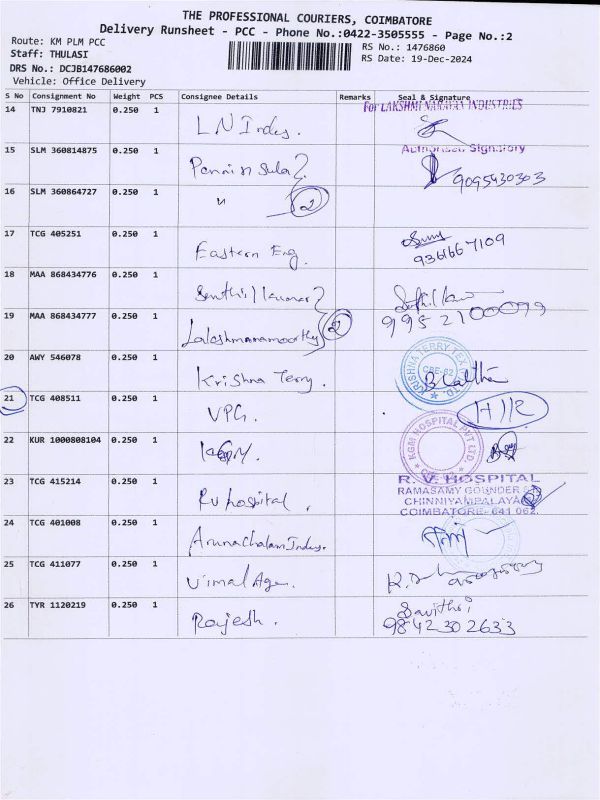 THE PROFESSIONAL COURIERS, COIMBATORE
Delivery Runsheet - PCC - Phone No.:0422-3505555 - Page No.:2
Route: KM PLM PCC
RS No.: 1476860
Staff: THULASI
RS Date: 19-Dec-2024
DRS No.: DCJB147686002
Vehicle: Office Delivery
S No Consignment No Weight PCS Consignee Details Remarks Seal & Signature
For LAKSHMI NARAYAN INDUSTRIES
14 TNJ 7910821 0.250 1 LN Indus.
Authorised Signatory
15 SLM 360814875 0.250 1 9095430303
16 SLM 360864727 0.250 1 " 2
17 TCG 405251 0.250 1 Eastern Eng. 9361667109
18 MAA 868434776 0.250 1 Senthil kumar
19 MAA 868434777 0.250 1 Lakshmanamoorthy 2 9952100099
20 AWY 546078 0.250 1 Krishna Terry. KRISHNA TERRY TEX LTD. CBE-62
21 TCG 408511 0.250 1 VPG. H/R
22 KUR 1000808104 0.250 1 KGM. KGM HOSPITAL PVT LTD
23 TCG 415214 0.250 1 RV hospital. R. V. HOSPITAL
RAMASAMY GOUNDER
CHINNIYAMPALAYAM
COIMBATORE- 641 062.
24 TCG 401008 0.250 1 Arunachalam Indus.
25 TCG 411077 0.250 1 Vimal Age.
26 TYR 1120219 0.250 1 Rajesh. Savithri
9842302633